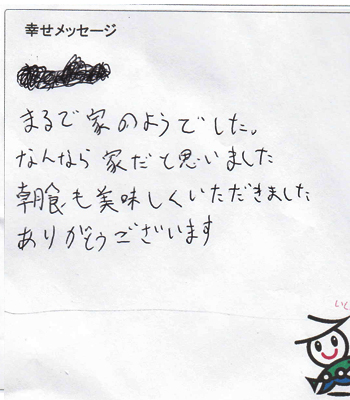 幸せメッセージ
まるで家のようでした。
なんなら家だと思いました
朝食も美味しくいただきました
ありがとうございます